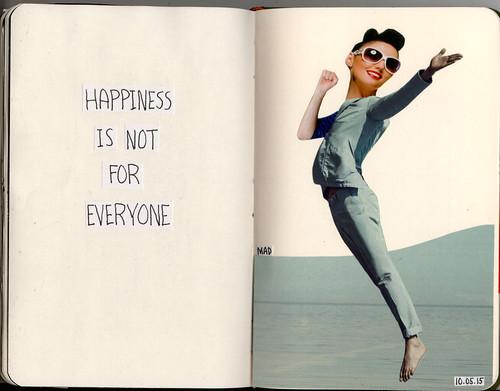 HAPPINESS
IS NOT
FOR
EVERYONE
MAD
10.05.15